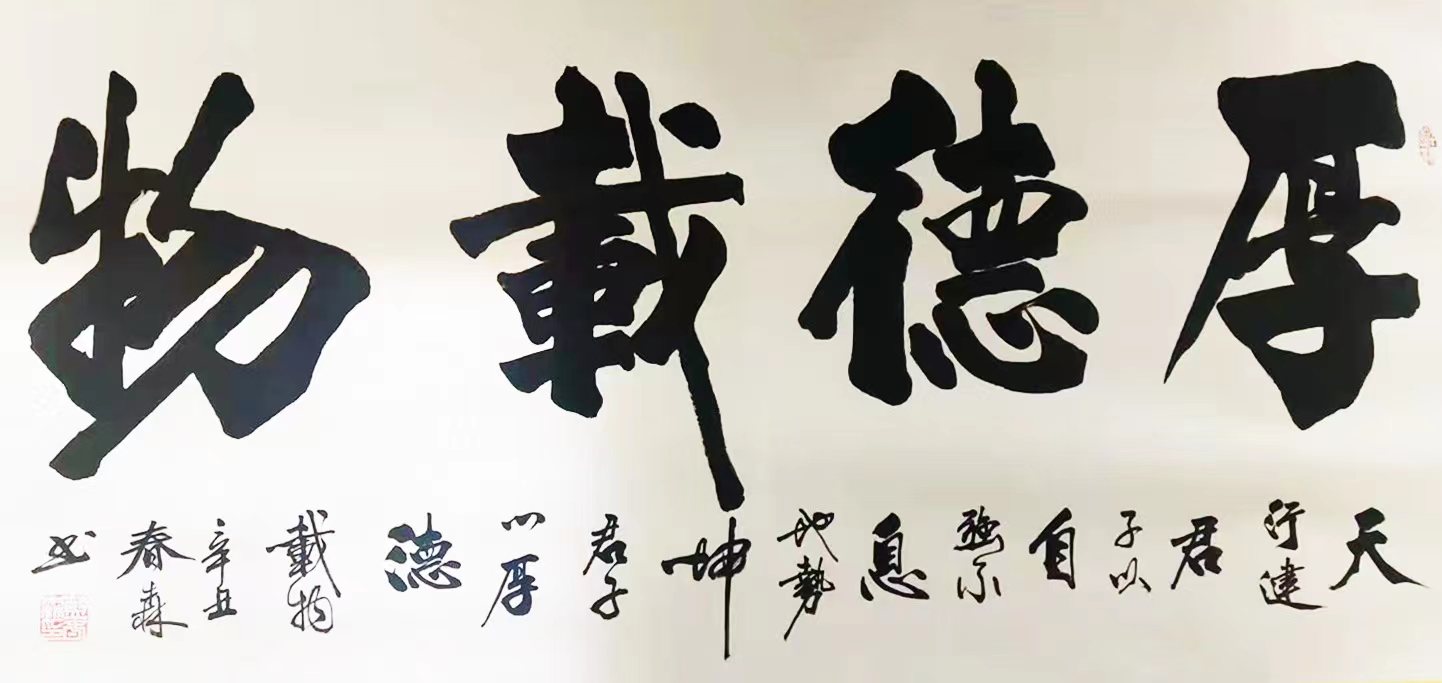 厚德載物
天行建君子以自強不息地勢坤君子以厚德載物
辛丑春森书